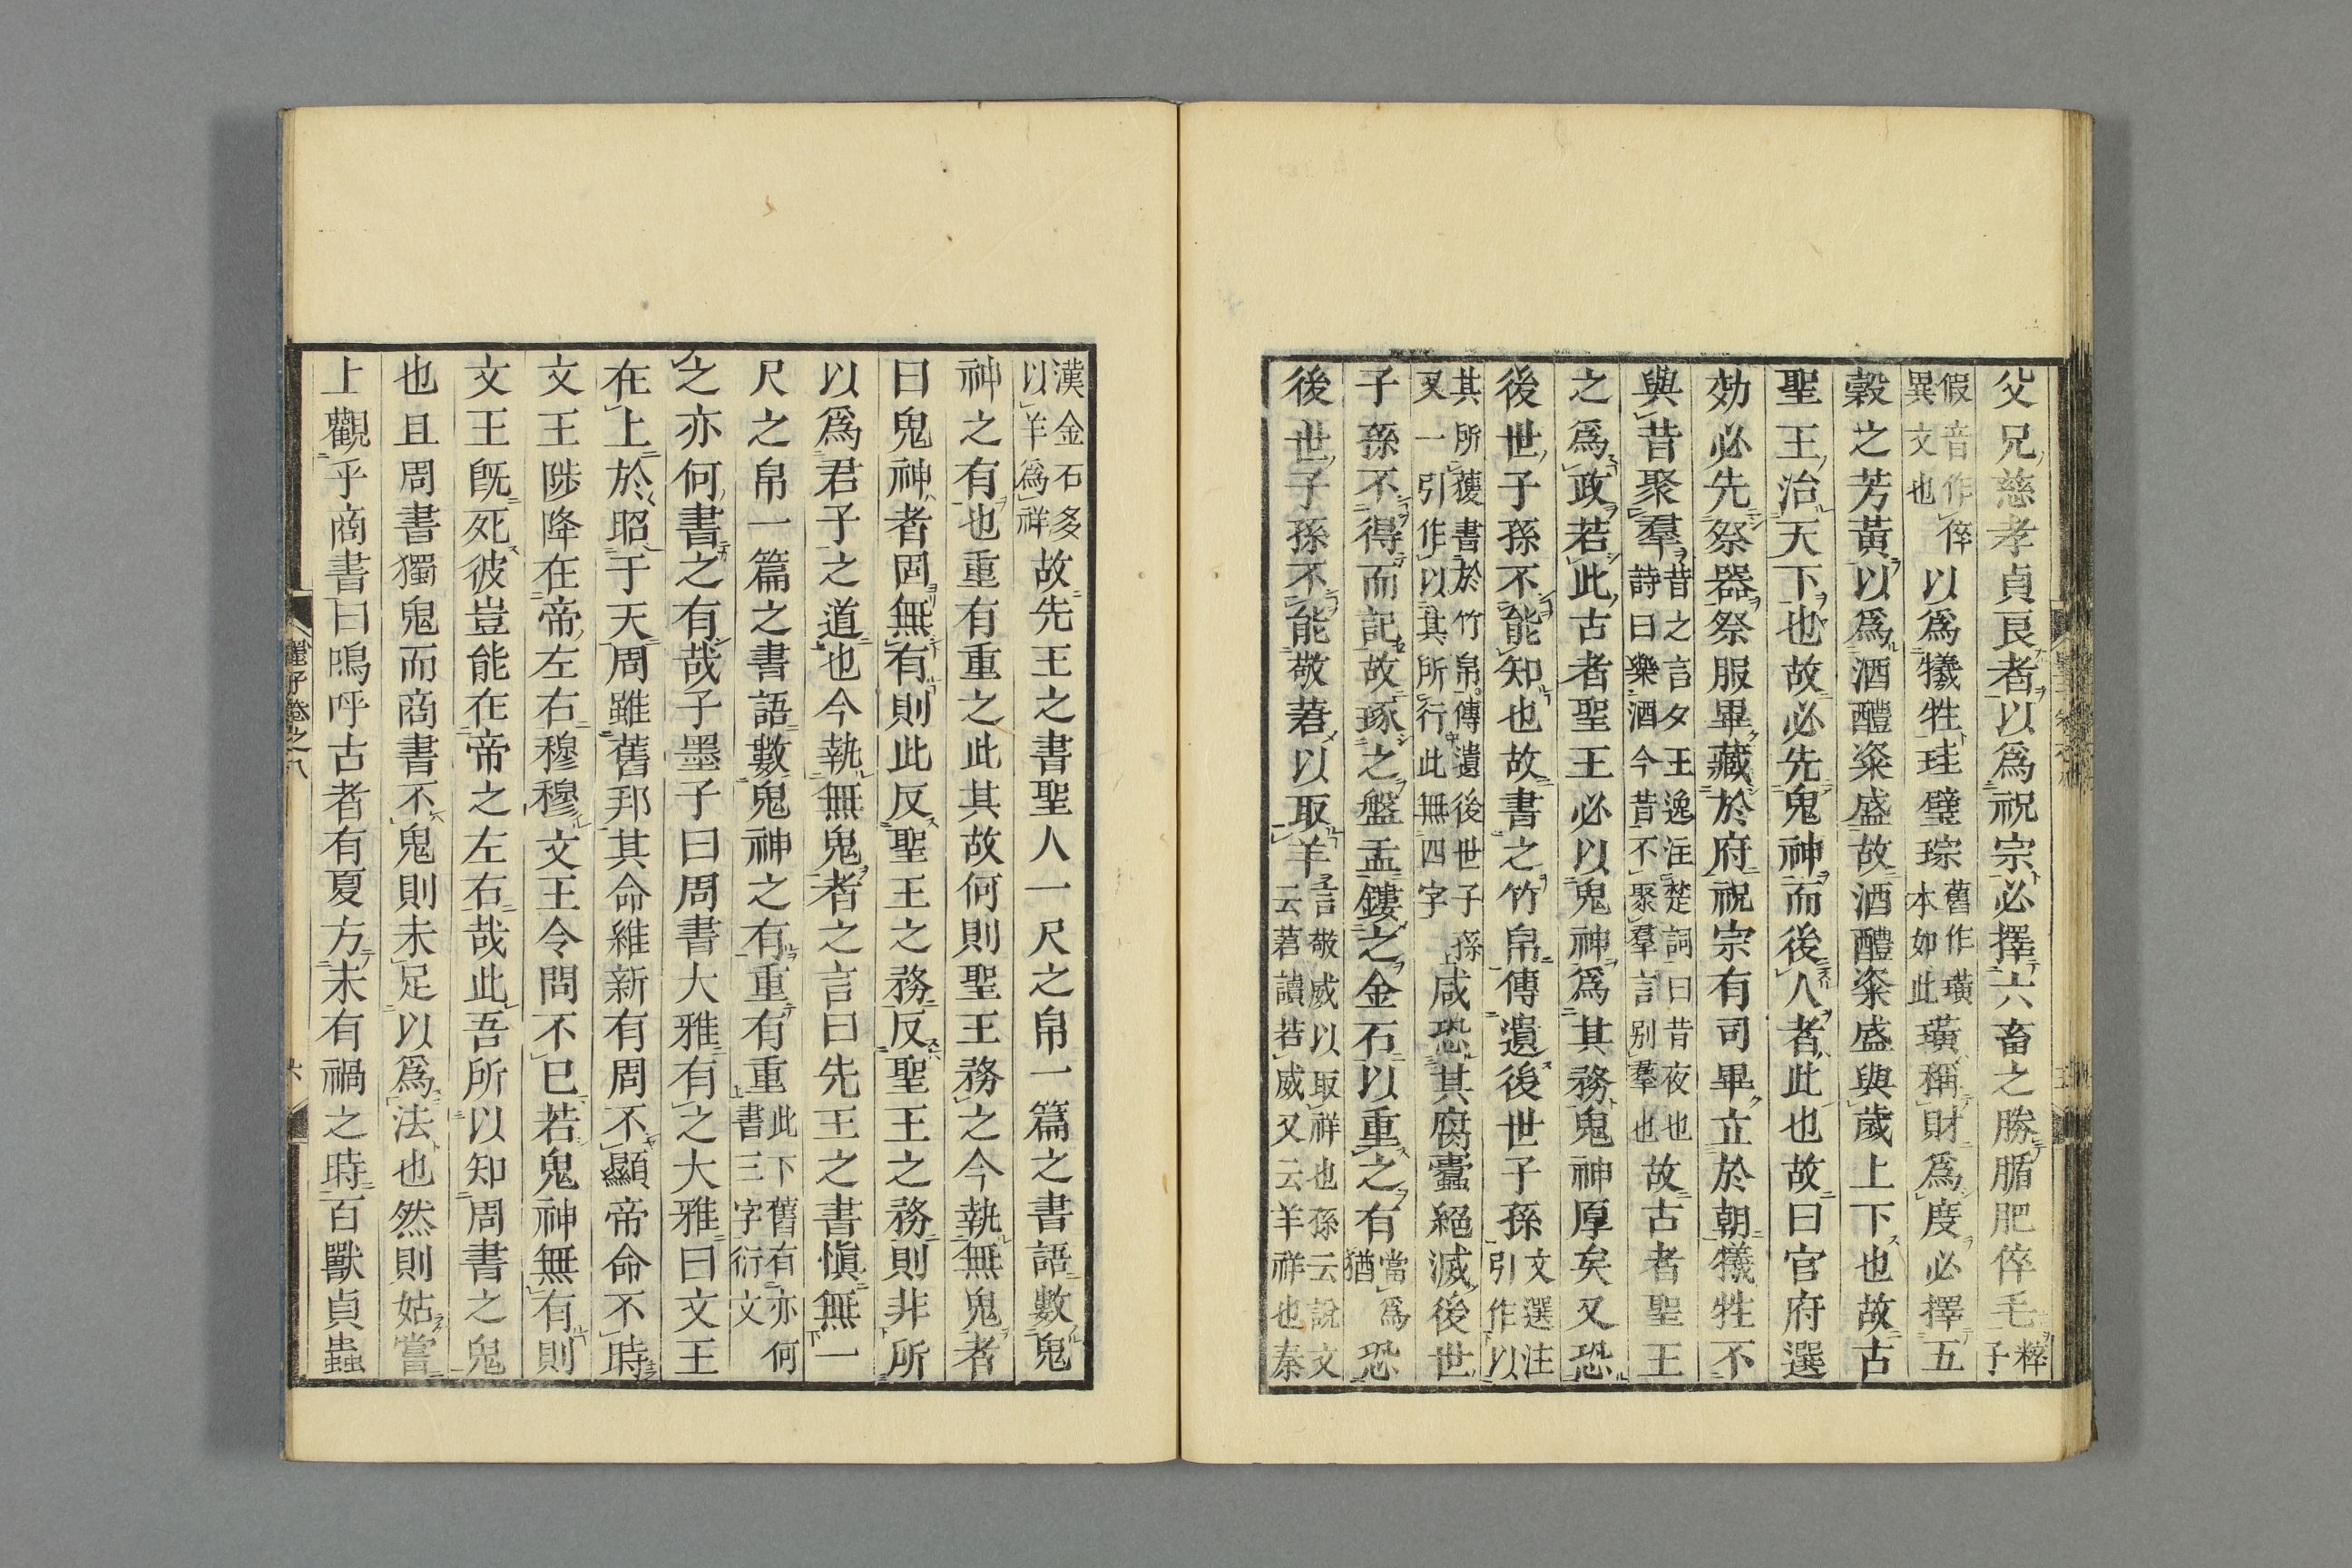 父兄慈孝貞良者以爲祝宗必擇六畜之勝腯肥倅毛粹子
假音作倅異文也以爲犧牲珪璧琮舊作璜本如此璜稱財爲度必擇五
穀之芳黃以爲酒醴粢盛故酒醴粢盛與歲上下也故古
聖王治天下也故必先鬼神而後人者此也故曰官府選
効必先祭器祭服畢藏於府祝宗有司畢立於朝犧牲不
與昔聚羣昔之言夕王逸注楚詞曰昔夜也詩曰樂酒今昔不聚羣言别羣也故古者聖王
之爲政若此古者聖王必以鬼神爲其務鬼神厚矣又恐
後世子孫不能知也故書之竹帛傳遺後世子孫文選注引作以
其所獲書於竹帛傳遺後世子孫又一引作以其所行此無四字上咸恐其腐蠹絕滅後世
子孫不得而記故琢之盤盂鏤之金石以重之有當爲猶恐
後世子孫不能敬莙以取羊言敬威以取祥也孫云說文云莙讀若威又云羊祥也秦
漢金石多以羊爲祥故先王之書聖人一尺之帛一篇之書語數鬼
神之有也重有重之此其故何則聖王務之今執無鬼者
曰鬼神者固無有則此反聖王之務反聖王之務則非所
以爲君子之道也今執無鬼者之言曰先王之書愼無一
尺之帛一篇之書語數鬼神之有重有重此下舊有亦何書三字衍文
之亦何書之有哉子墨子曰周書大雅有之大雅曰文王
在上於昭于天周雖舊邦其命維新有周不顯帝命不時
文王陟降在帝左右穆穆文王令問不已若鬼神無有則
文王旣死彼豈能在帝之左右哉此吾所以知周書之鬼
也且周書獨鬼而商書不鬼則未足以爲法也然則姑嘗
上觀乎商書曰嗚呼古者有夏方未有禍之時百獸貞蟲
墨子卷之八
六